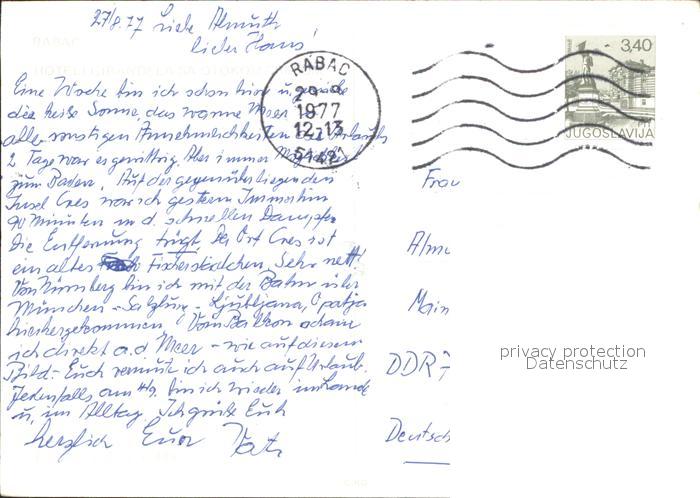 27/8.77 Liebe Almuth
lieber Hans,
Eine Woche bin ich schon hier u. genieße
die heiße Sonne, das warme Meer
alle sonstigen Annehmlichkeiten Urlaubs
2 Tage war es gewittrig. Aber immer
zum Baden. Auf der gegenüberliegenden
Insel Cres war ich gestern. Immerhin
90 Minuten m d. schnellen Dampfer
die Entfernung trügt. Der Ort Cres ist
ein altes Fischerstädchen, Sehr nett!
Von Nürnberg bin ich mit der Bahn über
München - Salzburg - Ljubljana, Opatja
hierhergekommen. Vom Balkon schaue
ich direkt a.d Meer - wie auf diesem
Bild - Euch vermute ich auch auf Urlaub.
Jedenfalls am 4/9. bin ich wieder im Lande
u. im Alltag. Ich grüße Euch
herzlich Euer
RABAC
1977
51421
3,40
JUGOSLAVIJA
Frau
Almu
Main
DDR-7
Deutsch
privacy protection
Datenschutz